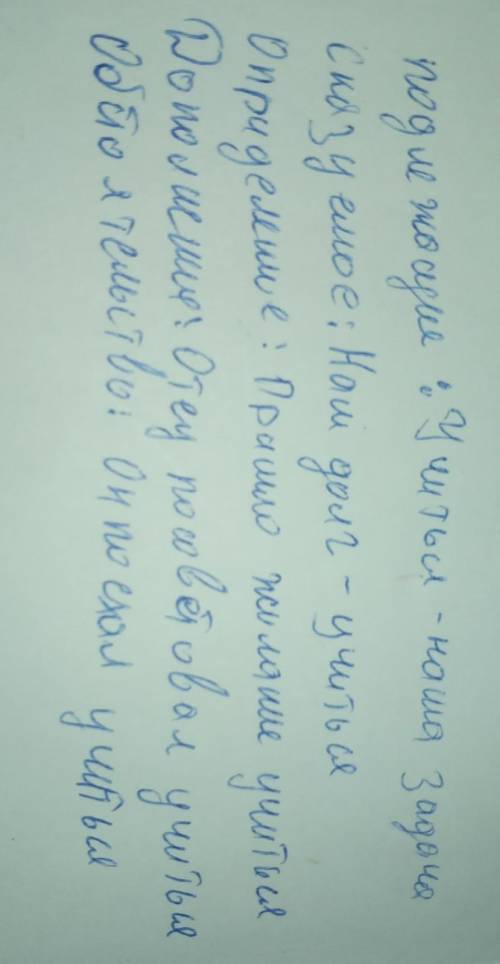 Подлежащие: Учиться - наша задача
Сказуемое: Наш долг - учиться
Опридемние: Прашло жилание учиться
Дополнения: Отец посоветовал учиться
Обстоятельство: Он поехал учиться